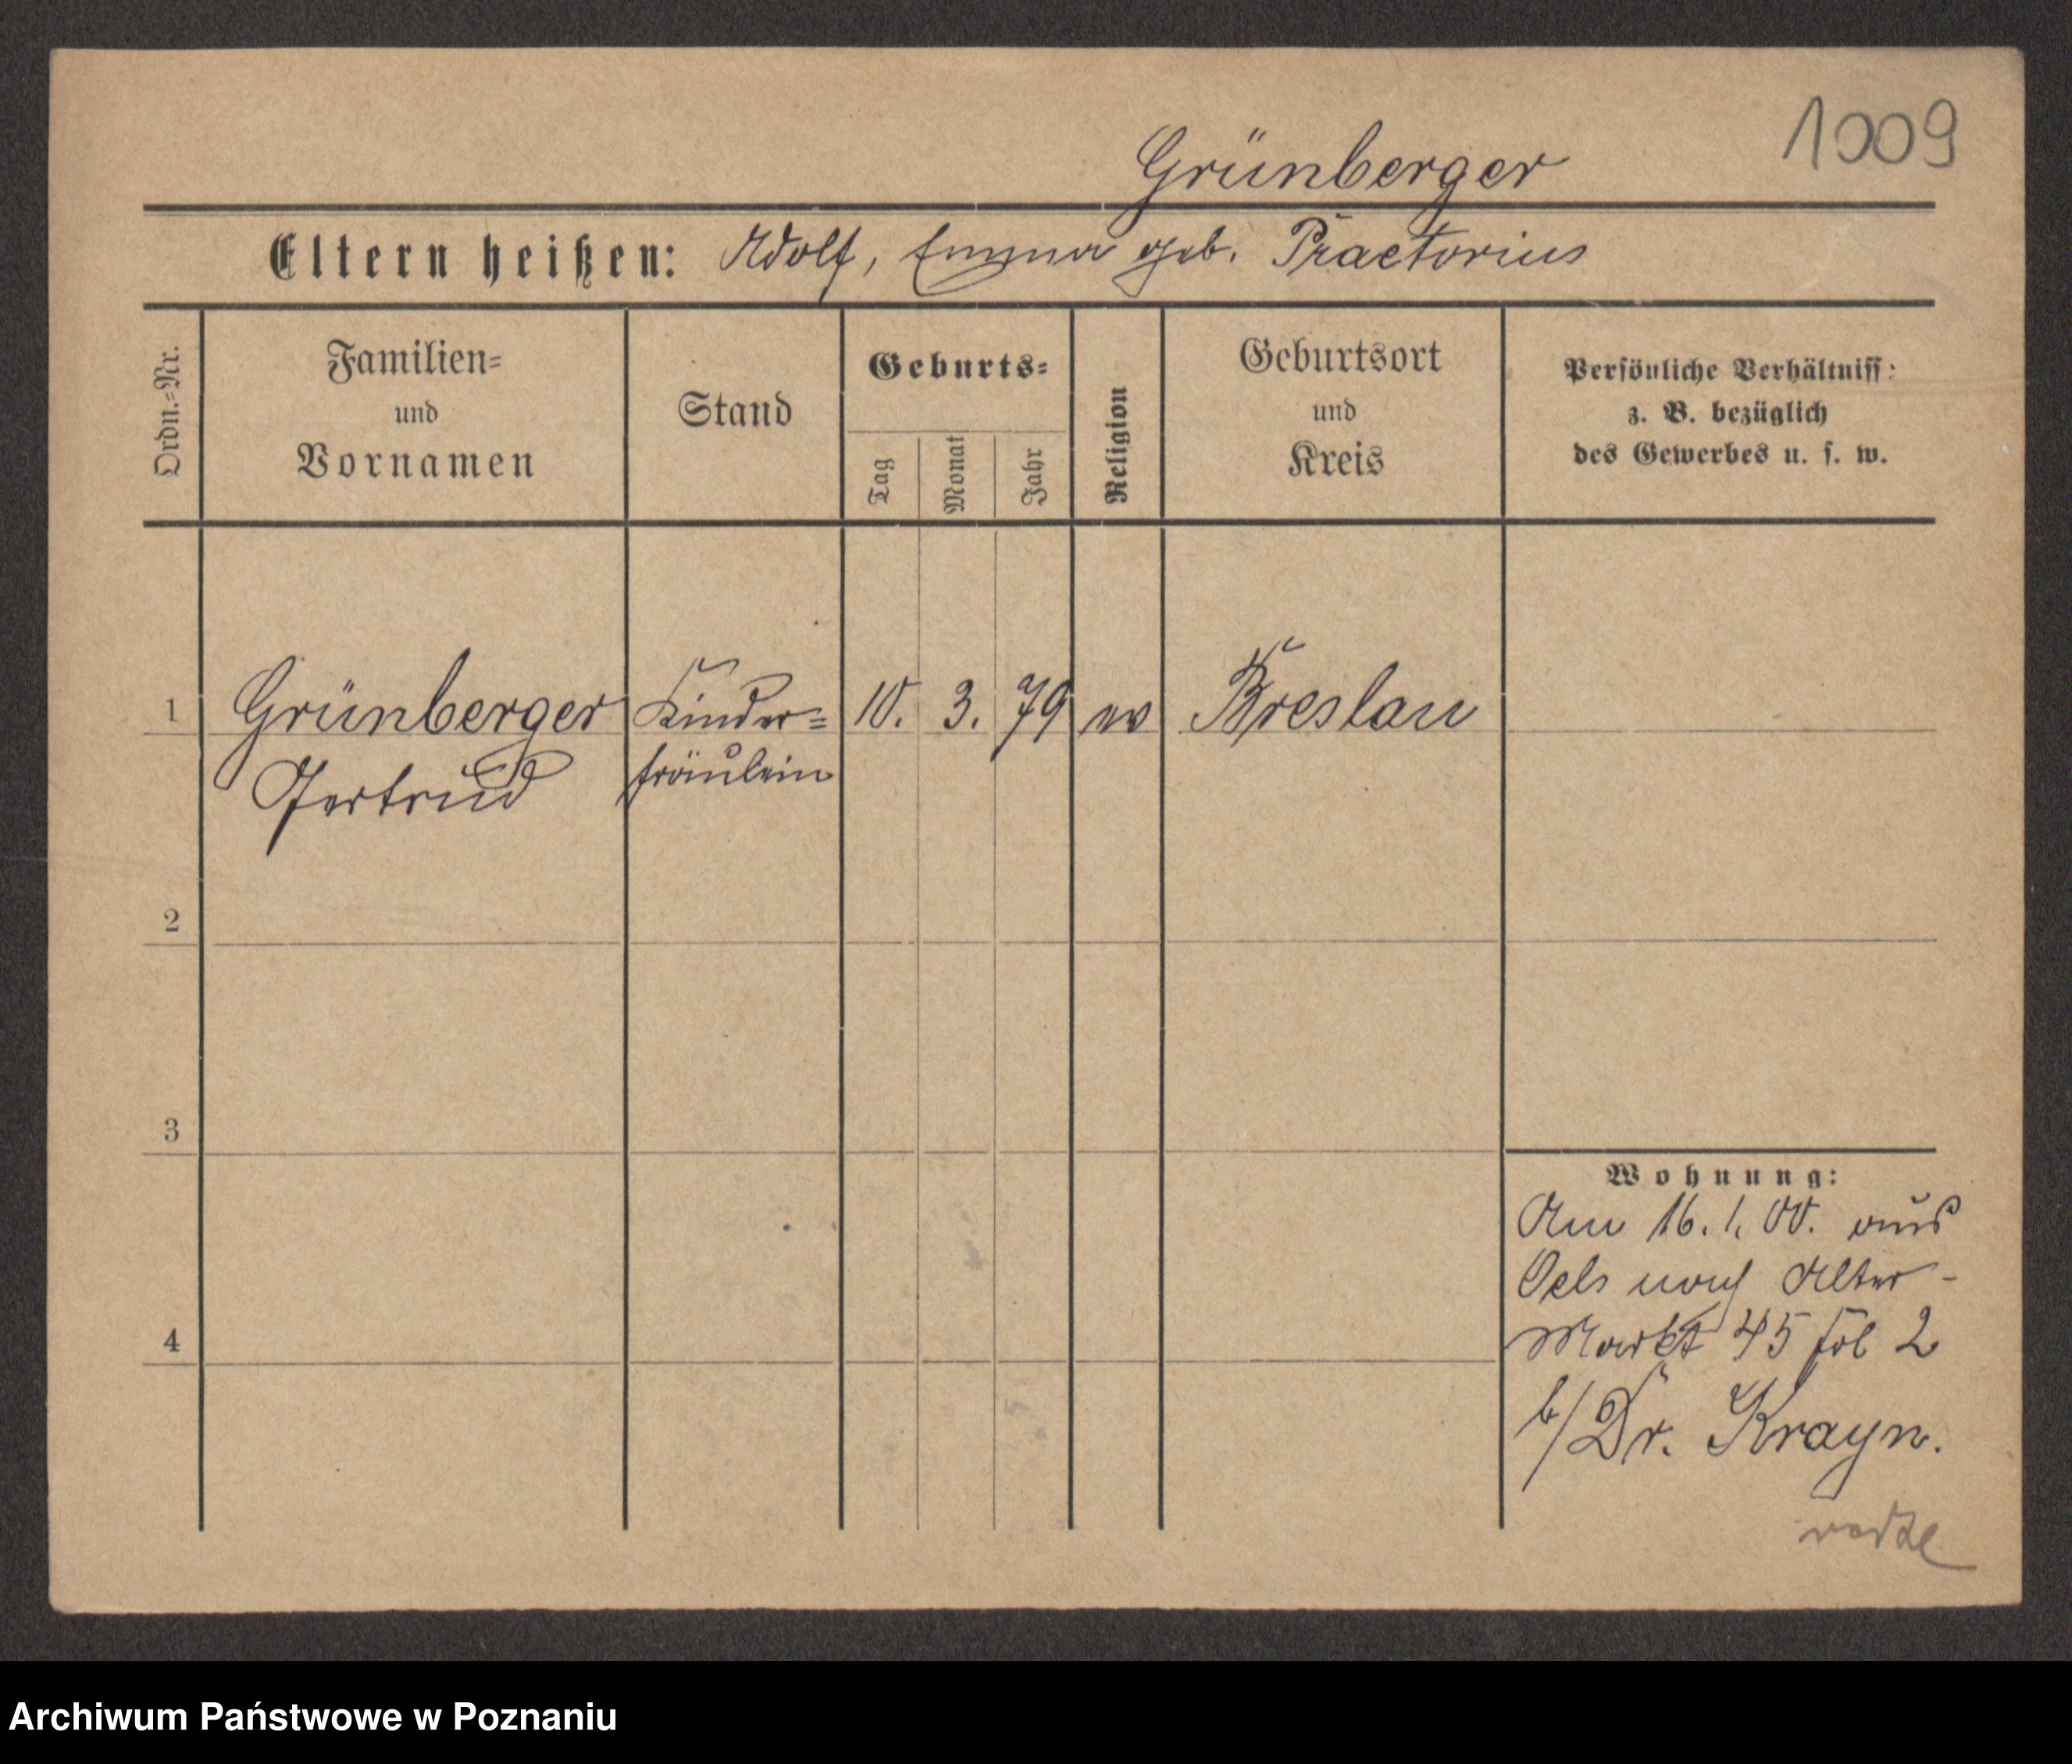 1009
Grünberger
Eltern heißen: Adolf, Emma geb. Praetorius
Ordn.=Nr.
Familien=
und
Vornamen
Stand
Geburts=
Tag
Monat
Jahr
Religion
Geburtsort
und
Kreis
Persönliche Verhältniss:
z. B. bezüglich
des Gewerbes u. s. w.
1 Grünberger Kinder= 10. 3. 79 ev Breslau
Gertrud fräulein
2
3
4
Wohnung:
Am 16. 1. 00. aus
Oels nach Alter-
Markt 45 fol 2
b/Dr. Krayn.
Archiwum Państwowe w Poznaniu